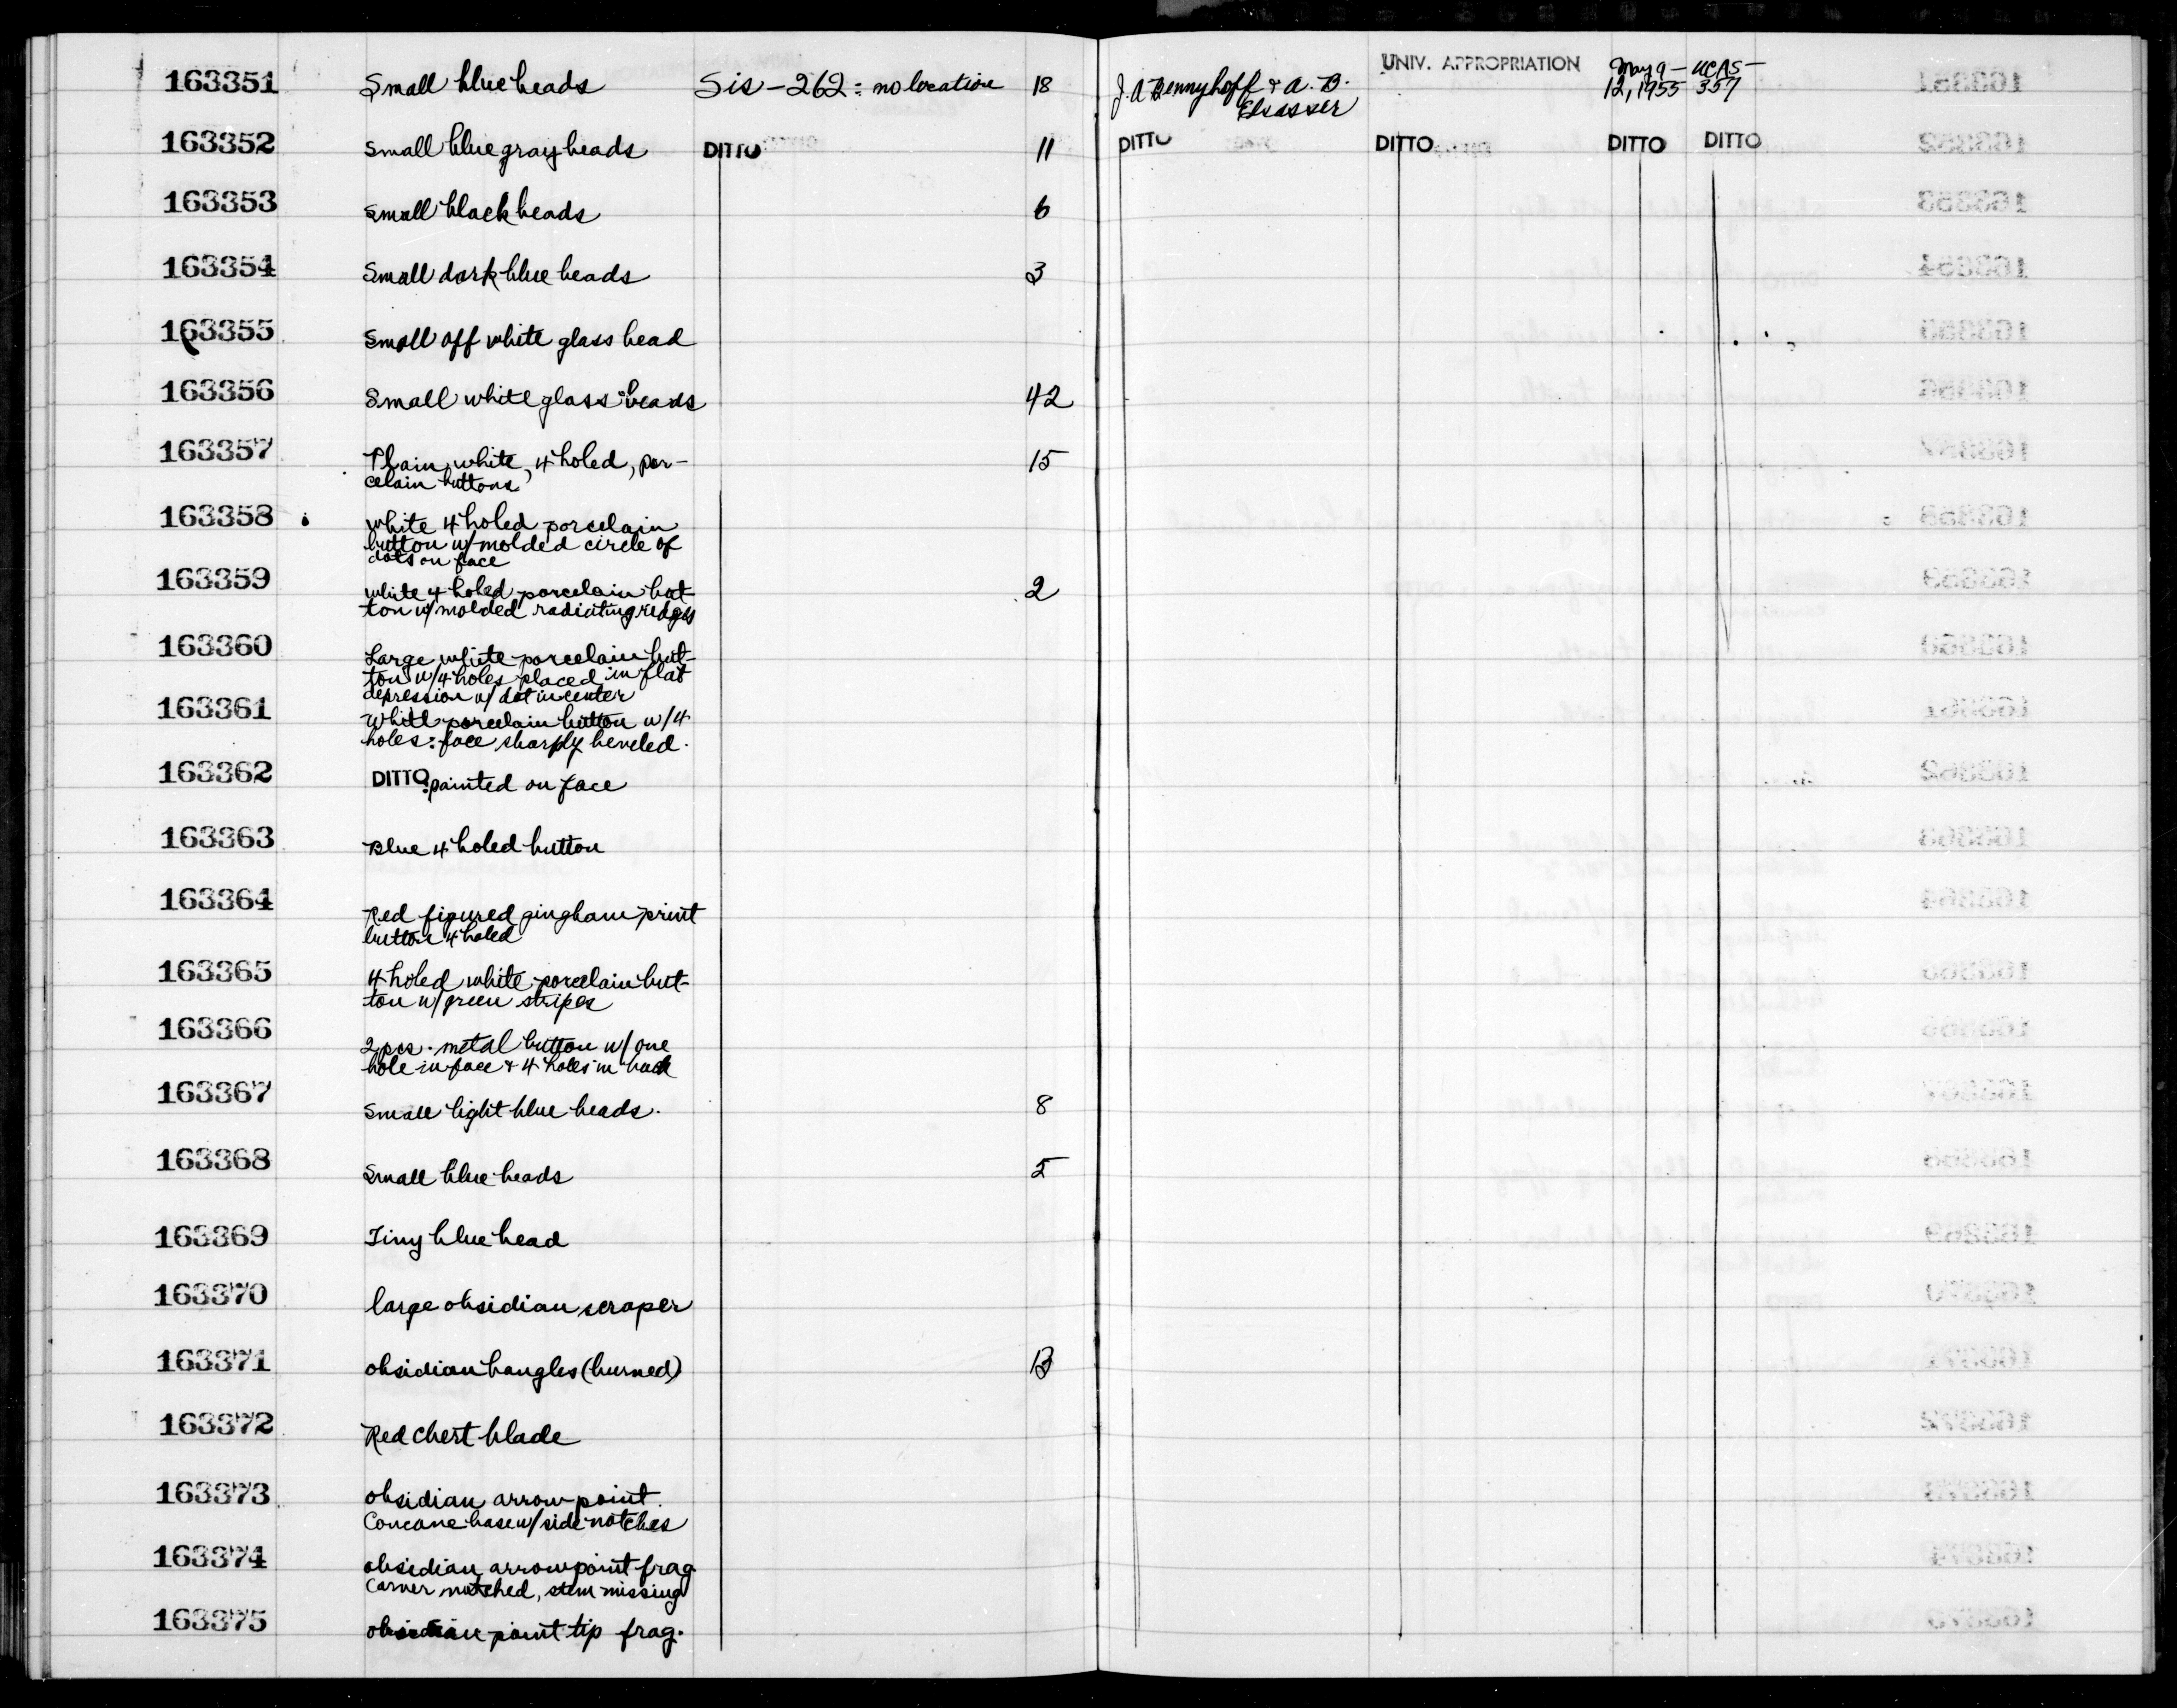 163351 Small blue beads Sis-262: no location 18 J. A. Bennyhoff & A. B. Elsasser UNIV. APPROPRIATION May 9-12, 1955 UCAS-357
163352 Small blue gray beads DITTO 11 DITTO DITTO DITTO DITTO
163353 Small black beads 6
163354 Small dark blue beads 3
163355 Small off white glass bead
163356 Small white glass beads 42
163357 Plain, white, 4 holed, por- 15
celain buttons
163358 White 4 holed porcelain
button w/ molded circle of
dots on face
163359 White 4 holed porcelain but- 2
ton w/ molded radiating ridges
163360 Large white porcelain but-
ton w/ 4 holes placed in flat
depression w/ dot in center
163361 White porcelain button w/ 4
holes: face sharply beveled.
163362 DITTO: painted on face
163363 Blue 4 holed button
163364 Red figured gingham print
button 4 holed
163365 4 holed white porcelain but-
ton w/ green stripes
163366 2 pcs. metal button w/ one
hole in face & 4 holes in back
163367 Small light blue beads. 8
163368 Small blue beads 5
163369 Tiny blue bead
163370 large obsidian scraper
163371 obsidian bangles (burned) 13
163372 Red chert blade
163373 obsidian arrow point.
Concave base w/ side notches
163374 obsidian arrowpoint frag.
Corner notched, stem missing
163375 obsidian point tip frag.